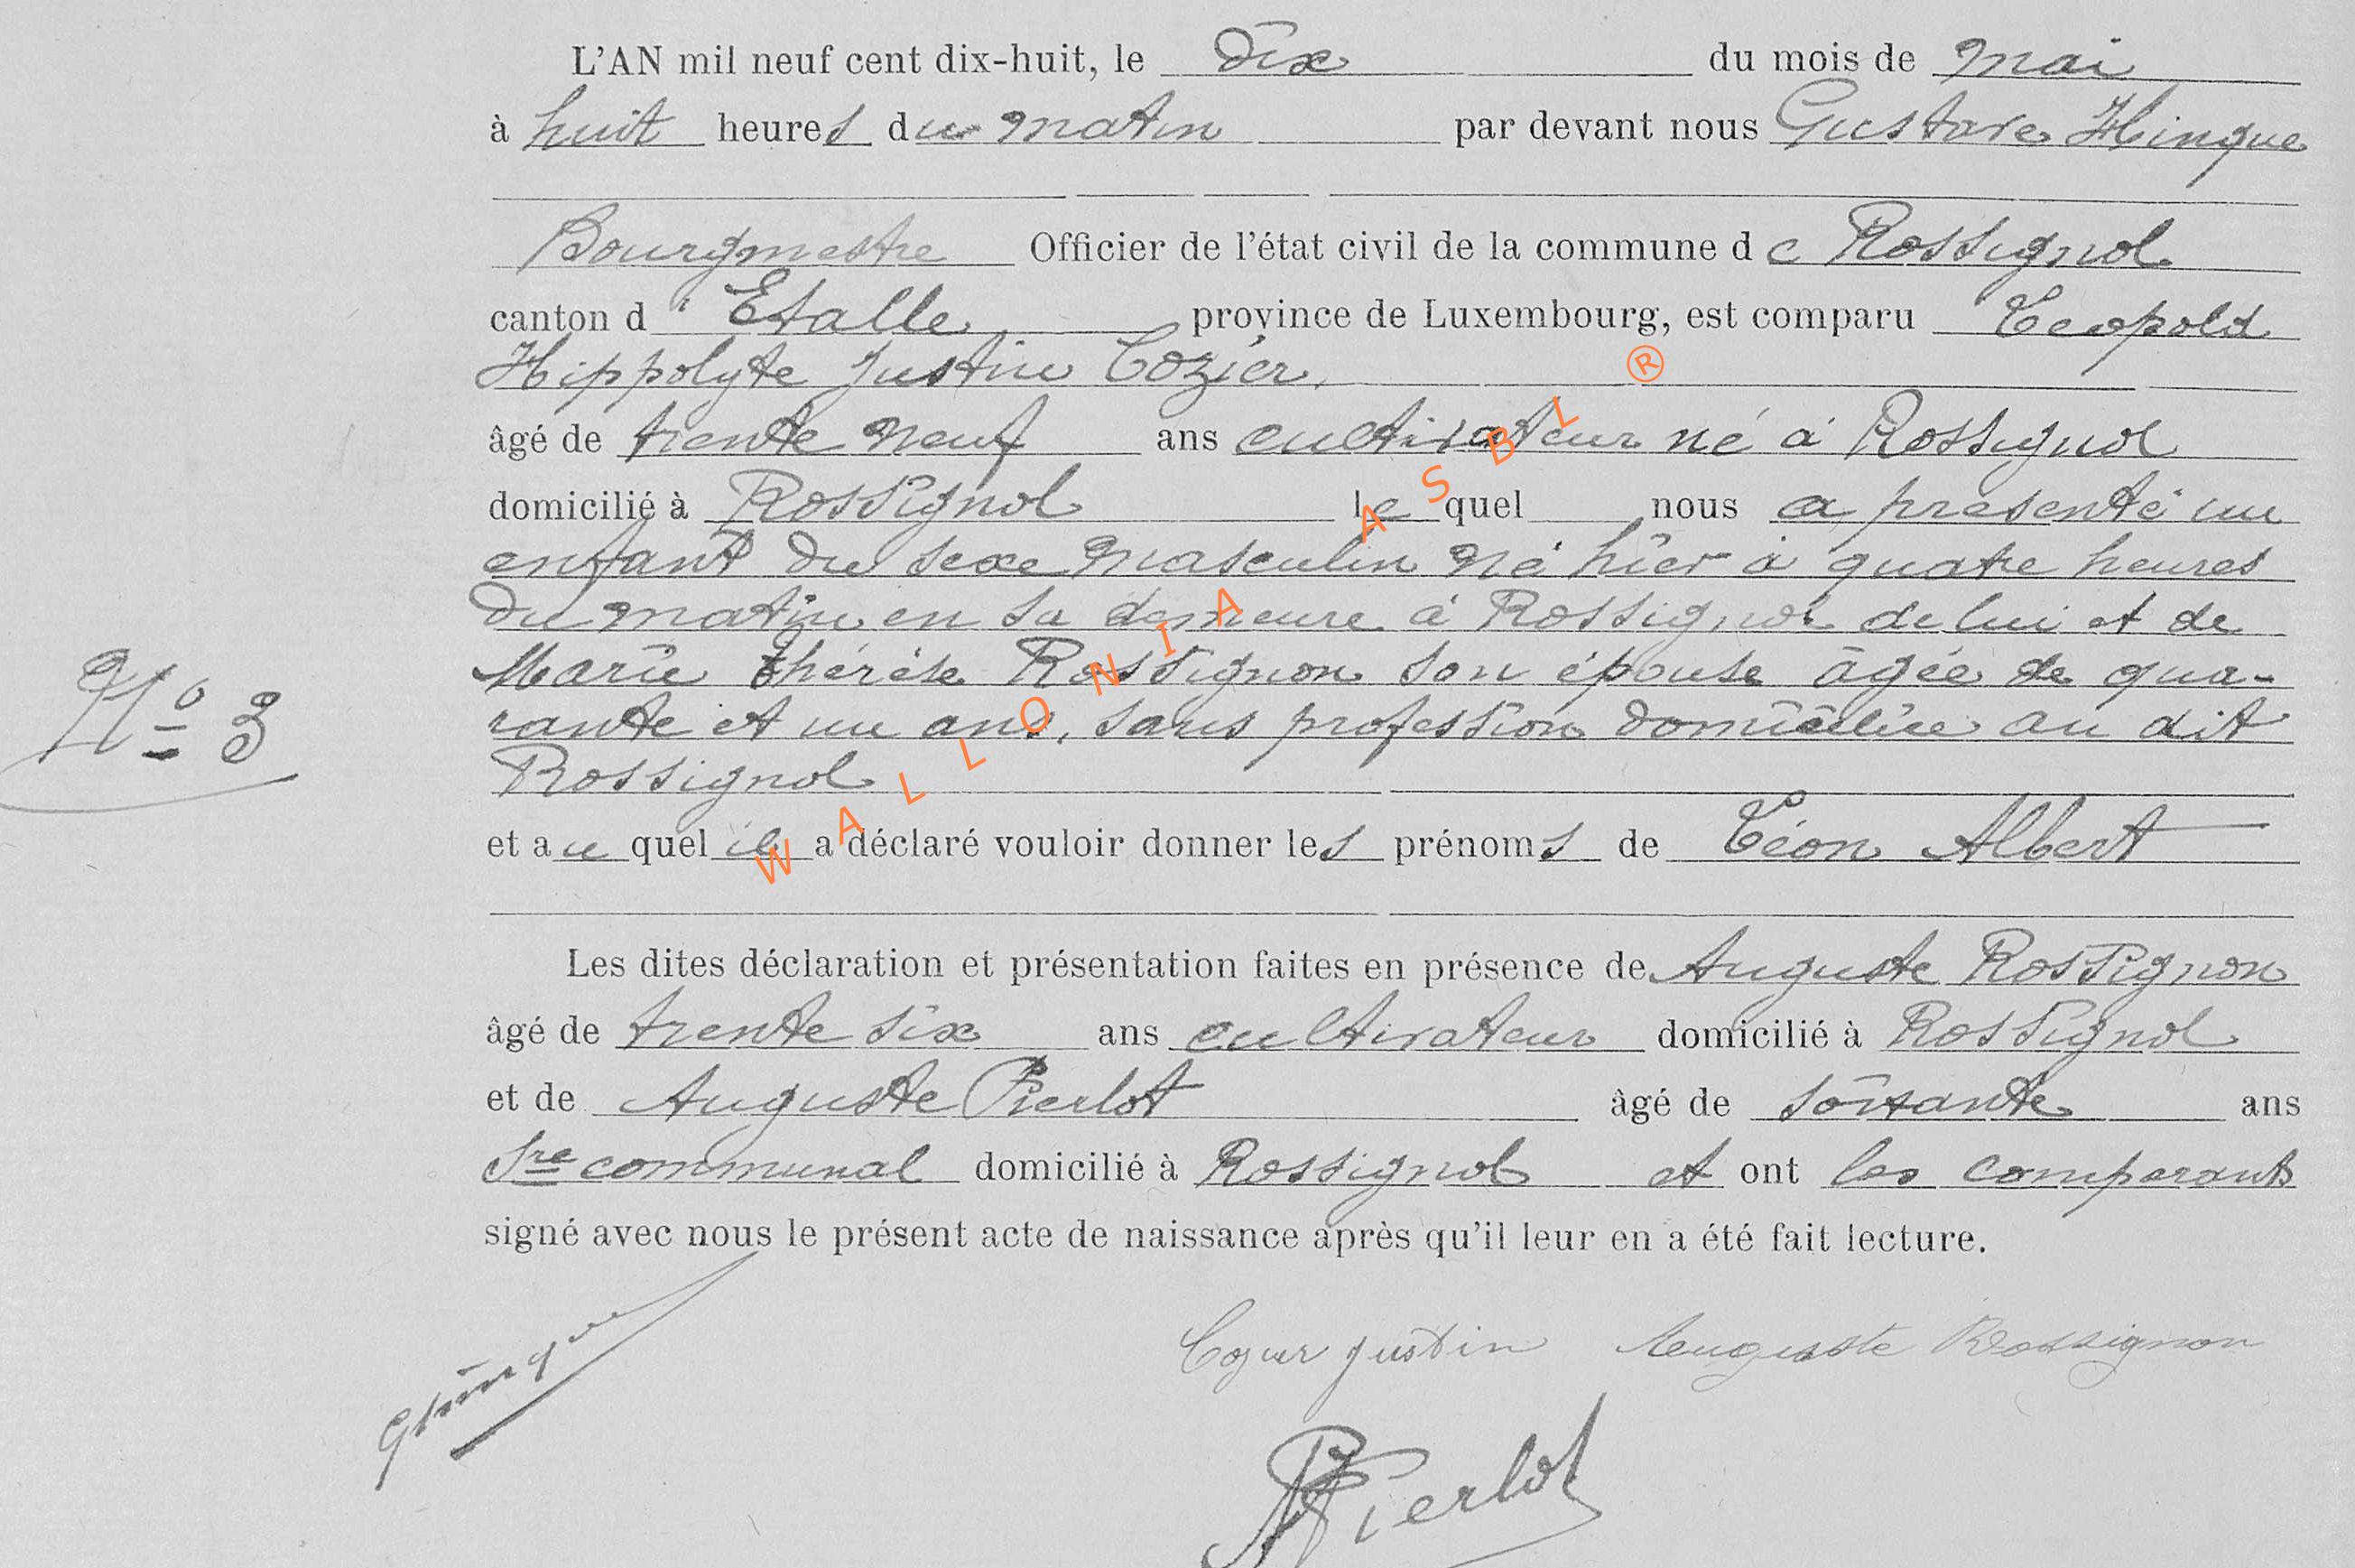 L'AN mil neuf cent dix-huit, le dix du mois de mai
à huit heures du matin par devant nous Gustave Hinque
Bourgmestre Officier de l'état civil de la commune de Rossignol
canton d' Etalle, province de Luxembourg, est comparu Léopold
Hippolyte Justin Cozier,
âgé de trente neuf ans cultivateur né à Rossignol
domicilié à Rossignol lequel nous a présenté un
enfant du sexe masculin né hier à quatre heures
du matin en sa demeure à Rossignol de lui et de
Marie thérèse Rossignon son épouse âgée de qua-
rante et un ans, sans profession domiciliée au dit
Rossignol
et au quel il a déclaré vouloir donner les prénoms de Léon Albert
Les dites déclaration et présentation faites en présence de Auguste Rossignon
âgé de trente six ans cultivateur domicilié à Rossignol
et de Auguste Pierlot âgé de soixante ans
Sre communal domicilié à Rossignol et ont les comparants
signé avec nous le présent acte de naissance après qu'il leur en a été fait lecture.
No 3
GHinque
Justin Auguste Rossignon
Pierlot
WALLONIA ASBL ®